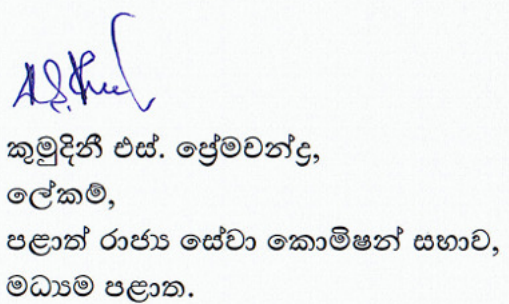 කුමුදිනී එස්. ප්‍රේමචන්ද්‍ර,
ලේකම්,
පළාත් රාජ්‍ය සේවා කොමිෂන් සභාව,
මධ්‍යම පළාත.